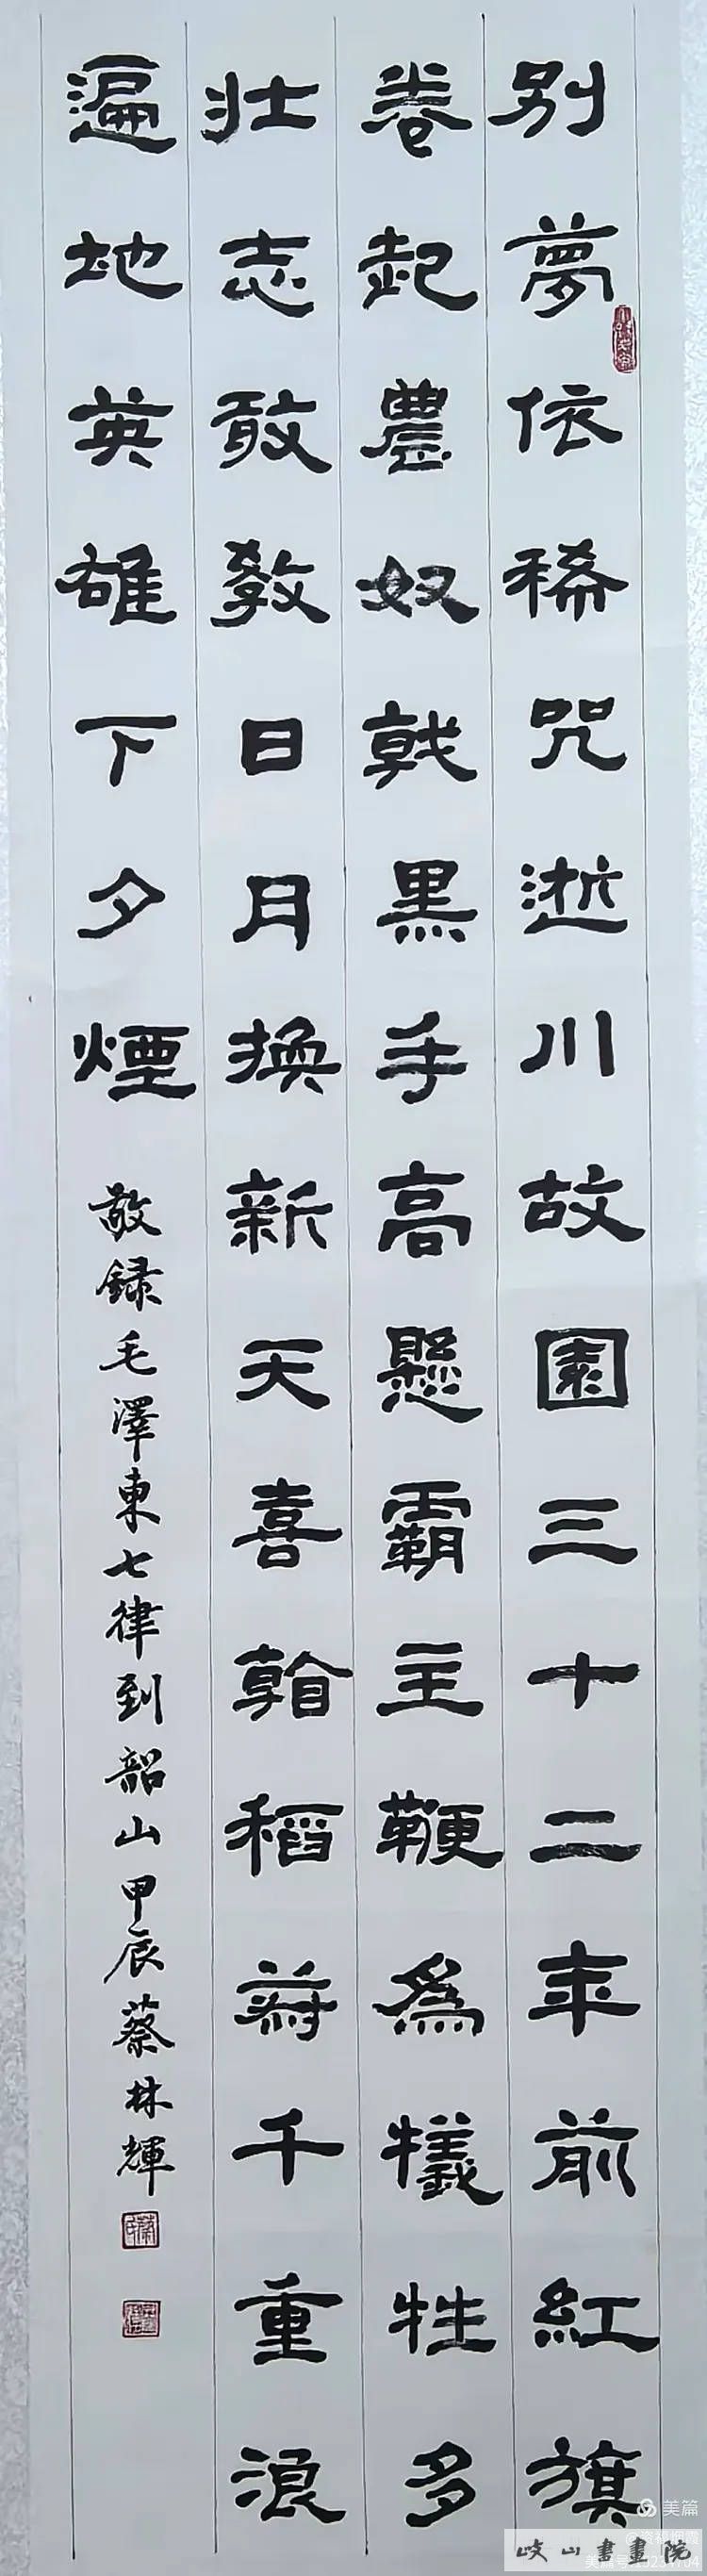 别夢依稀咒逝川故園三十二年前紅旗
卷起農奴戟黑手高懸霸主鞭爲犧牲多
壯志敢教日月換新天喜看稻菽千重浪
遍地英雄下夕煙
敬録毛澤東七律到韶山甲辰蔡林輝
美篇
岐山書畫院